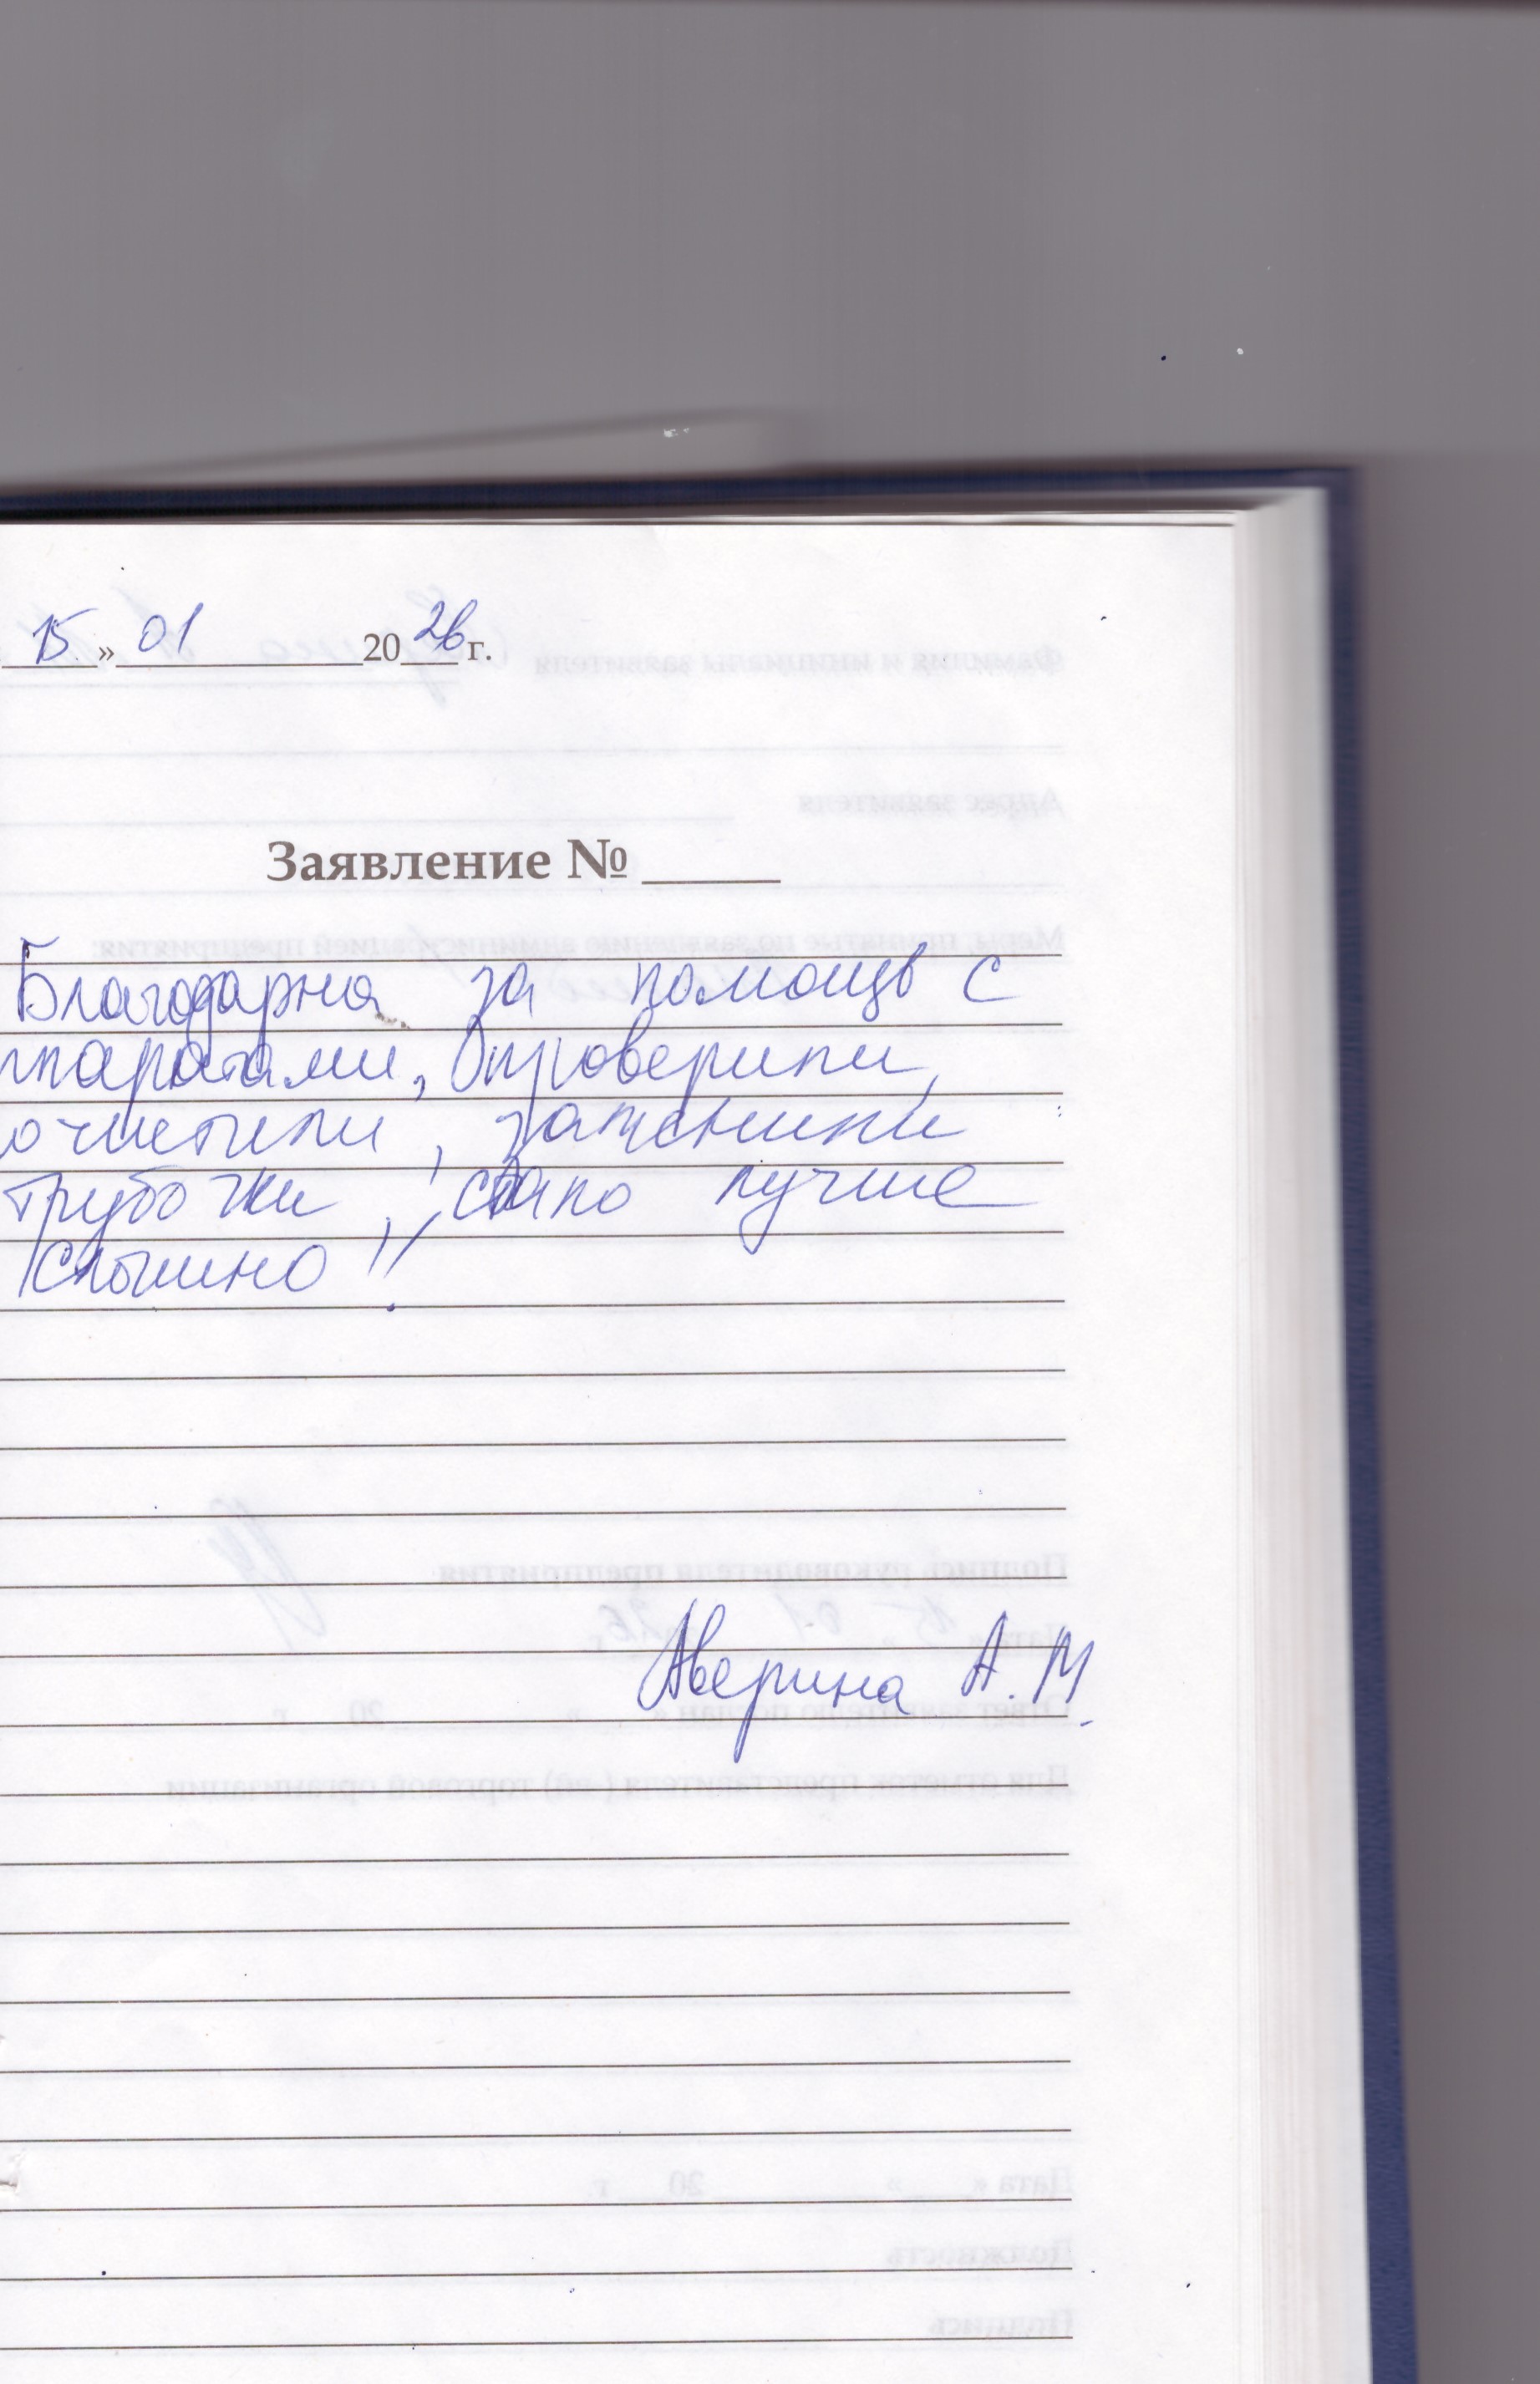 15 » 01 2026 г.
Заявление №
Благодарна за помощь с
ппаратами, проверили,
очистили, заменили
трубочки, стало лучше
слышно!!
Аверина А.М.